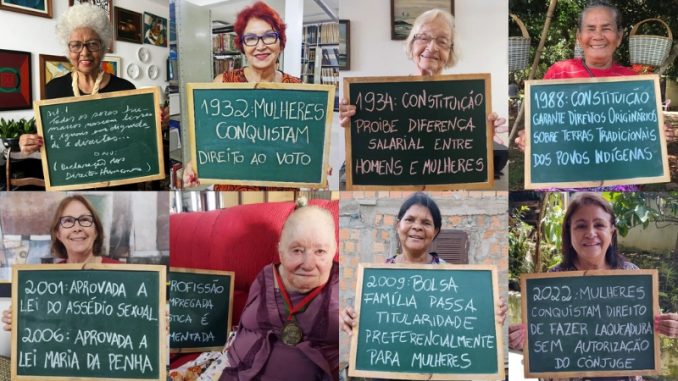 Todos os seres hu-
manos nascem livres
e iguais em dignida-
de e direitos...
ONU
(Declaração dos
Direitos Humanos)
1932: MULHERES
CONQUISTAM
DIREITO AO VOTO
1934: CONSTITUIÇÃO
PROIBE DIFERENÇA
SALARIAL ENTRE
HOMENS E MULHERES
1988: CONSTITUIÇÃO
GARANTE DIREITOS ORIGINÁRIOS
SOBRE TERRAS TRADICIONAIS
DOS POVOS INDÍGENAS
2001: APROVADA A
LEI DO ASSÉDIO SEXUAL
2006: APROVADA A
LEI MARIA DA PENHA
ROFISSÃO
MPREGADA
STICA É
MENTADA
2009: BOLSA
FAMÍLIA PASSA
TITULARIDADE
PREFERENCIALMENTE
PARA MULHERES
2022: MULHERES
CONQUISTAM DIREITO
DE FAZER LAQUEADURA
SEM AUTORIZAÇÃO
DO CÔNJUGE